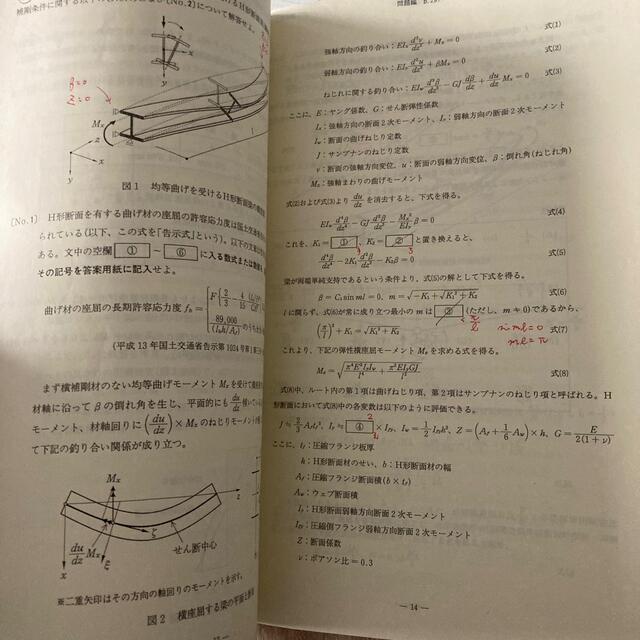 補剛条件に関する以
(No.2)について解答せよ。
y
β=0
z=0
Mx
x
y
l
図1 均等曲げを受けるH形断面梁の横座屈
〔No.1〕 H形断面を有する曲げ材の座屈の許容応力度は国土交通
られている(以下、この式を「告示式」という)。以下の文章は
ある。文中の空欄 ① ~ ⑥ に入る数式または数値
その記号を答案用紙に記入せよ。
曲げ材の座屈の長期許容応力度 fb =
F{2/3 − 4/15
89,000
(lbh/Af) のうち
(平成13年国土交通省告示第1024号第1第三
まず横補剛材のない均等曲げモーメント Mx を受けて横座屈
材軸に沿って β の倒れ角を生じ、平面的にも du/dz 傾いている
モーメント、材軸回りに (du/dz) × Mx のねじりモーメントが
て下記の釣り合い関係が成り立つ。
Mx
z
ζ
du/dz Mx
ξ
x
せん断中心
※二重矢印はその方向の軸回りのモーメントを示す。
図2 横座屈する梁の平面と
問題編
強軸方向の釣り合い:EIx d²v/dz² + Mx = 0 式(1)
弱軸方向の釣り合い:EIy d²u/dz² + βMx = 0 式(2)
ねじれに関する釣り合い:EIw d³β/dz³ − GJ dβ/dz + du/dz Mx = 0 式(3)
ここに、E:ヤング係数、G:せん断弾性係数
Ix:強軸方向の断面2次モーメント、Iy:弱軸方向の断面2次モーメント
Iw:断面の曲げねじり定数
J:サンブナンのねじり定数
v:断面の強軸方向変位、u:断面の弱軸方向変位、β:倒れ角(ねじれ角)
Mx:強軸まわりの曲げモーメント
式(2)および式(3)より du/dz を消去すると、下式を得る。
EIw d⁴β/dz⁴ − GJ d²β/dz² − Mx²/EIy β = 0 式(4)
これを、K₁ = ① 、K₂ = ② と置き換えると、
d⁴β/dz⁴ − 2K₁ d²β/dz² − K₂β = 0 式(5)
梁が両端単純支持であるという条件より、式(5)の解として下式を得る。
β = C₁sin ml = 0, m = √(−K₁ + √(K₁² + K₂)) 式(6)
l に関らず、式(6)が常に成り立つ最小の m は ③ (ただし、m ≠ 0)であるから、
π/l
(π/l)² + K₁ = √(K₁² + K₂) 式(7)
ml = π
これより、下記の弾性横座屈モーメント Me を求める式を得る。
Me = √(π⁴E²IyIw/l⁴ + π²EIyGJ/l²) 式(8)
式(8)中、ルート内の第1項は曲げねじり項、第2項はサンブナンのねじり項と呼ばれる。H
形断面において式(8)中の各変数は以下のように評価できる。
J ≒ 2/3 Af tf², Iy ≒ ④ × Ify, Iw = 1/2 Ify h², Z = (Af + 1/6 Aw) × h, G = E/2(1+ν)
ここに、tf:圧縮フランジ板厚
h:H形断面材のせい、b:H形断面材の幅
Af:圧縮フランジ断面積(b × tf)
Aw:ウェブ断面積
Iy:H形断面弱軸方向断面2次モーメント
Ify:圧縮側フランジ弱軸方向断面2次モーメント
Z:断面係数
ν:ポアソン比 = 0.3
— 14 —